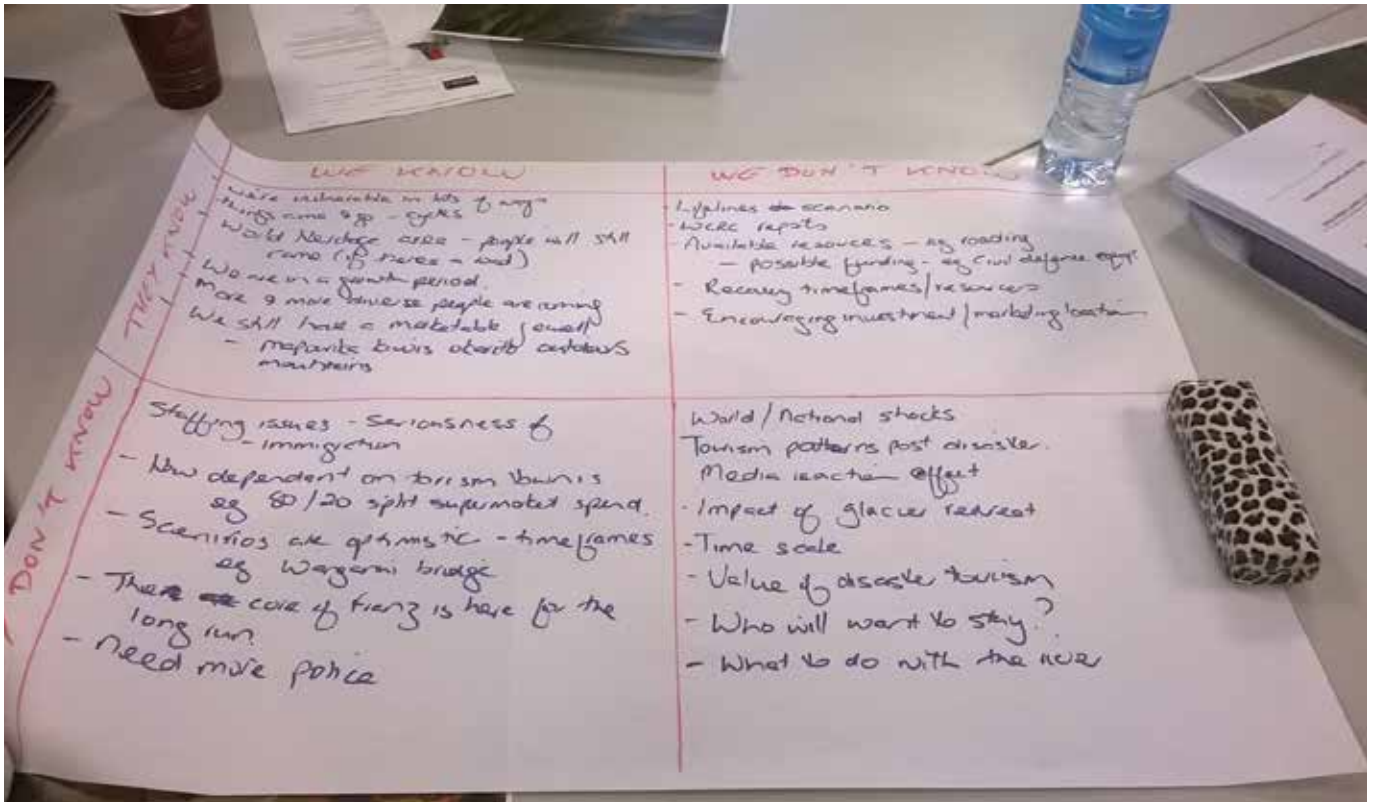 WE KNOW
WE DON'T KNOW
THEY KNOW
- we're vulnerable in lots of ways
- things come & go - cycles
- World Heritage area - people will still
come (if there's a road)
- We are in a growth period.
- More & more diverse people are coming
- We still have a marketable jewell
- mountains
- Lifelines scenario
- WCRC reports
- Available resources - eg roading
- possible funding - eg Civil defence equip
- Recovery timeframes/resources
- Encouraging investment/marketing location
DON'T KNOW
Staffing issues - Seriousness of
- immigration
- How dependent on tourism town is
eg 80/20 split supermarket spend.
- Scenirios are optimistic - timeframes
eg bridge
- The core of Franz is here for the
long run.
- need more police
World/National shocks
Tourism patterns post disaster.
Media reaction effect
- Impact of glacier retreat
- Time scale
- Value of disaster tourism
- Who will want to stay?
- What to do with the river